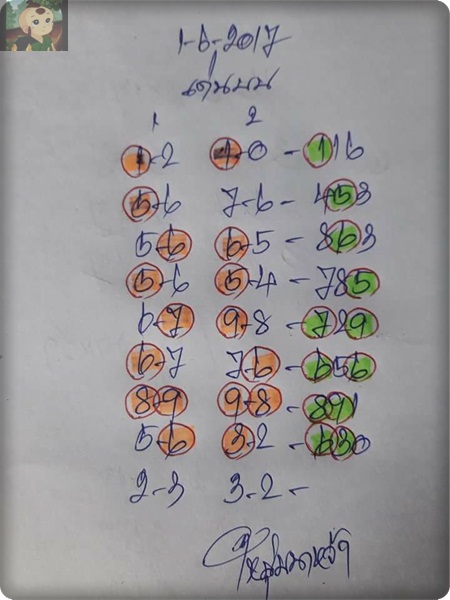 1-6-2017
เด่นบน
1 2
1-2 1-0 - 116
5-6 7-6 - 453
5-6 6-5 - 863
5-6 5-4 - 785
6-7 9-8 - 729
6-7 7-6 - 656
8-9 9-8 - 891
5-6 3-2 - 630
2-3 3-2 -